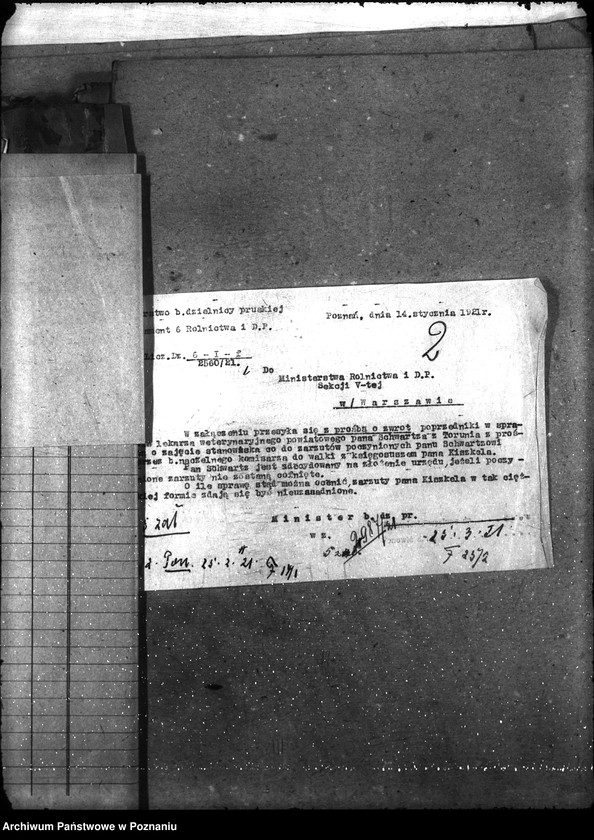 rstwo b.dzielnicy pruskiej
Poznań, dnia 14.stycznia 1921r.
ment 6 Rolnictwa i D.P.
icz.Dz. 6 - I - 2
2560/21.
2
Do
Ministerstwa Rolnictwa i D.P.
Sekcji V-tej
w/Warszawie
W załączeniu przesyła się z prośbą o zwrot poprzedniki w spra-
e lekarza weterynaryjnego powiatowego pana Schwartza z Torunia z proś-
o zajęcie stanowiska co do zarzutów poczynionych panu Schwartzowi
zez b.naczelnego komisarza do walki z księgosuszem pana Kiszkela.
Pan Schwartz jest zdecydowany na złożenie urzędu, jeżeli poczy-
ione zarzuty nie zostaną cofnięte.
O ile sprawę stąd można ocenić, zarzuty pana Kiszkela w tak cięż-
iej formie zdają się być nieuzasadnione.
Minister b. dz. pr.
w z.
zał
9987/21
25. 3. 21
25/2
2. Pon. 25. 2. 21.
Archiwum Państwowe w Poznaniu